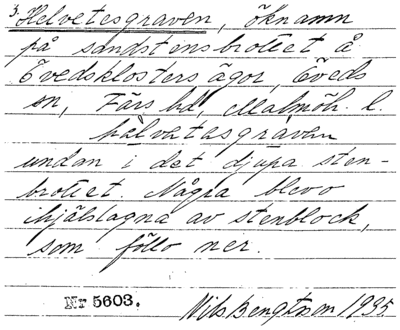 3. Helvetesgraven, öknamn
på sandstensbrottet å
Övedsklosters ägor, Öveds
sn, Färs hd, Malmöh. l.
hälvatasgravan
undan i det djupa sten-
brottet Några blevo
ihjälslagna av stenblock,
som föllo ner.
Nr 5603.
Nils Bengtsson 1935